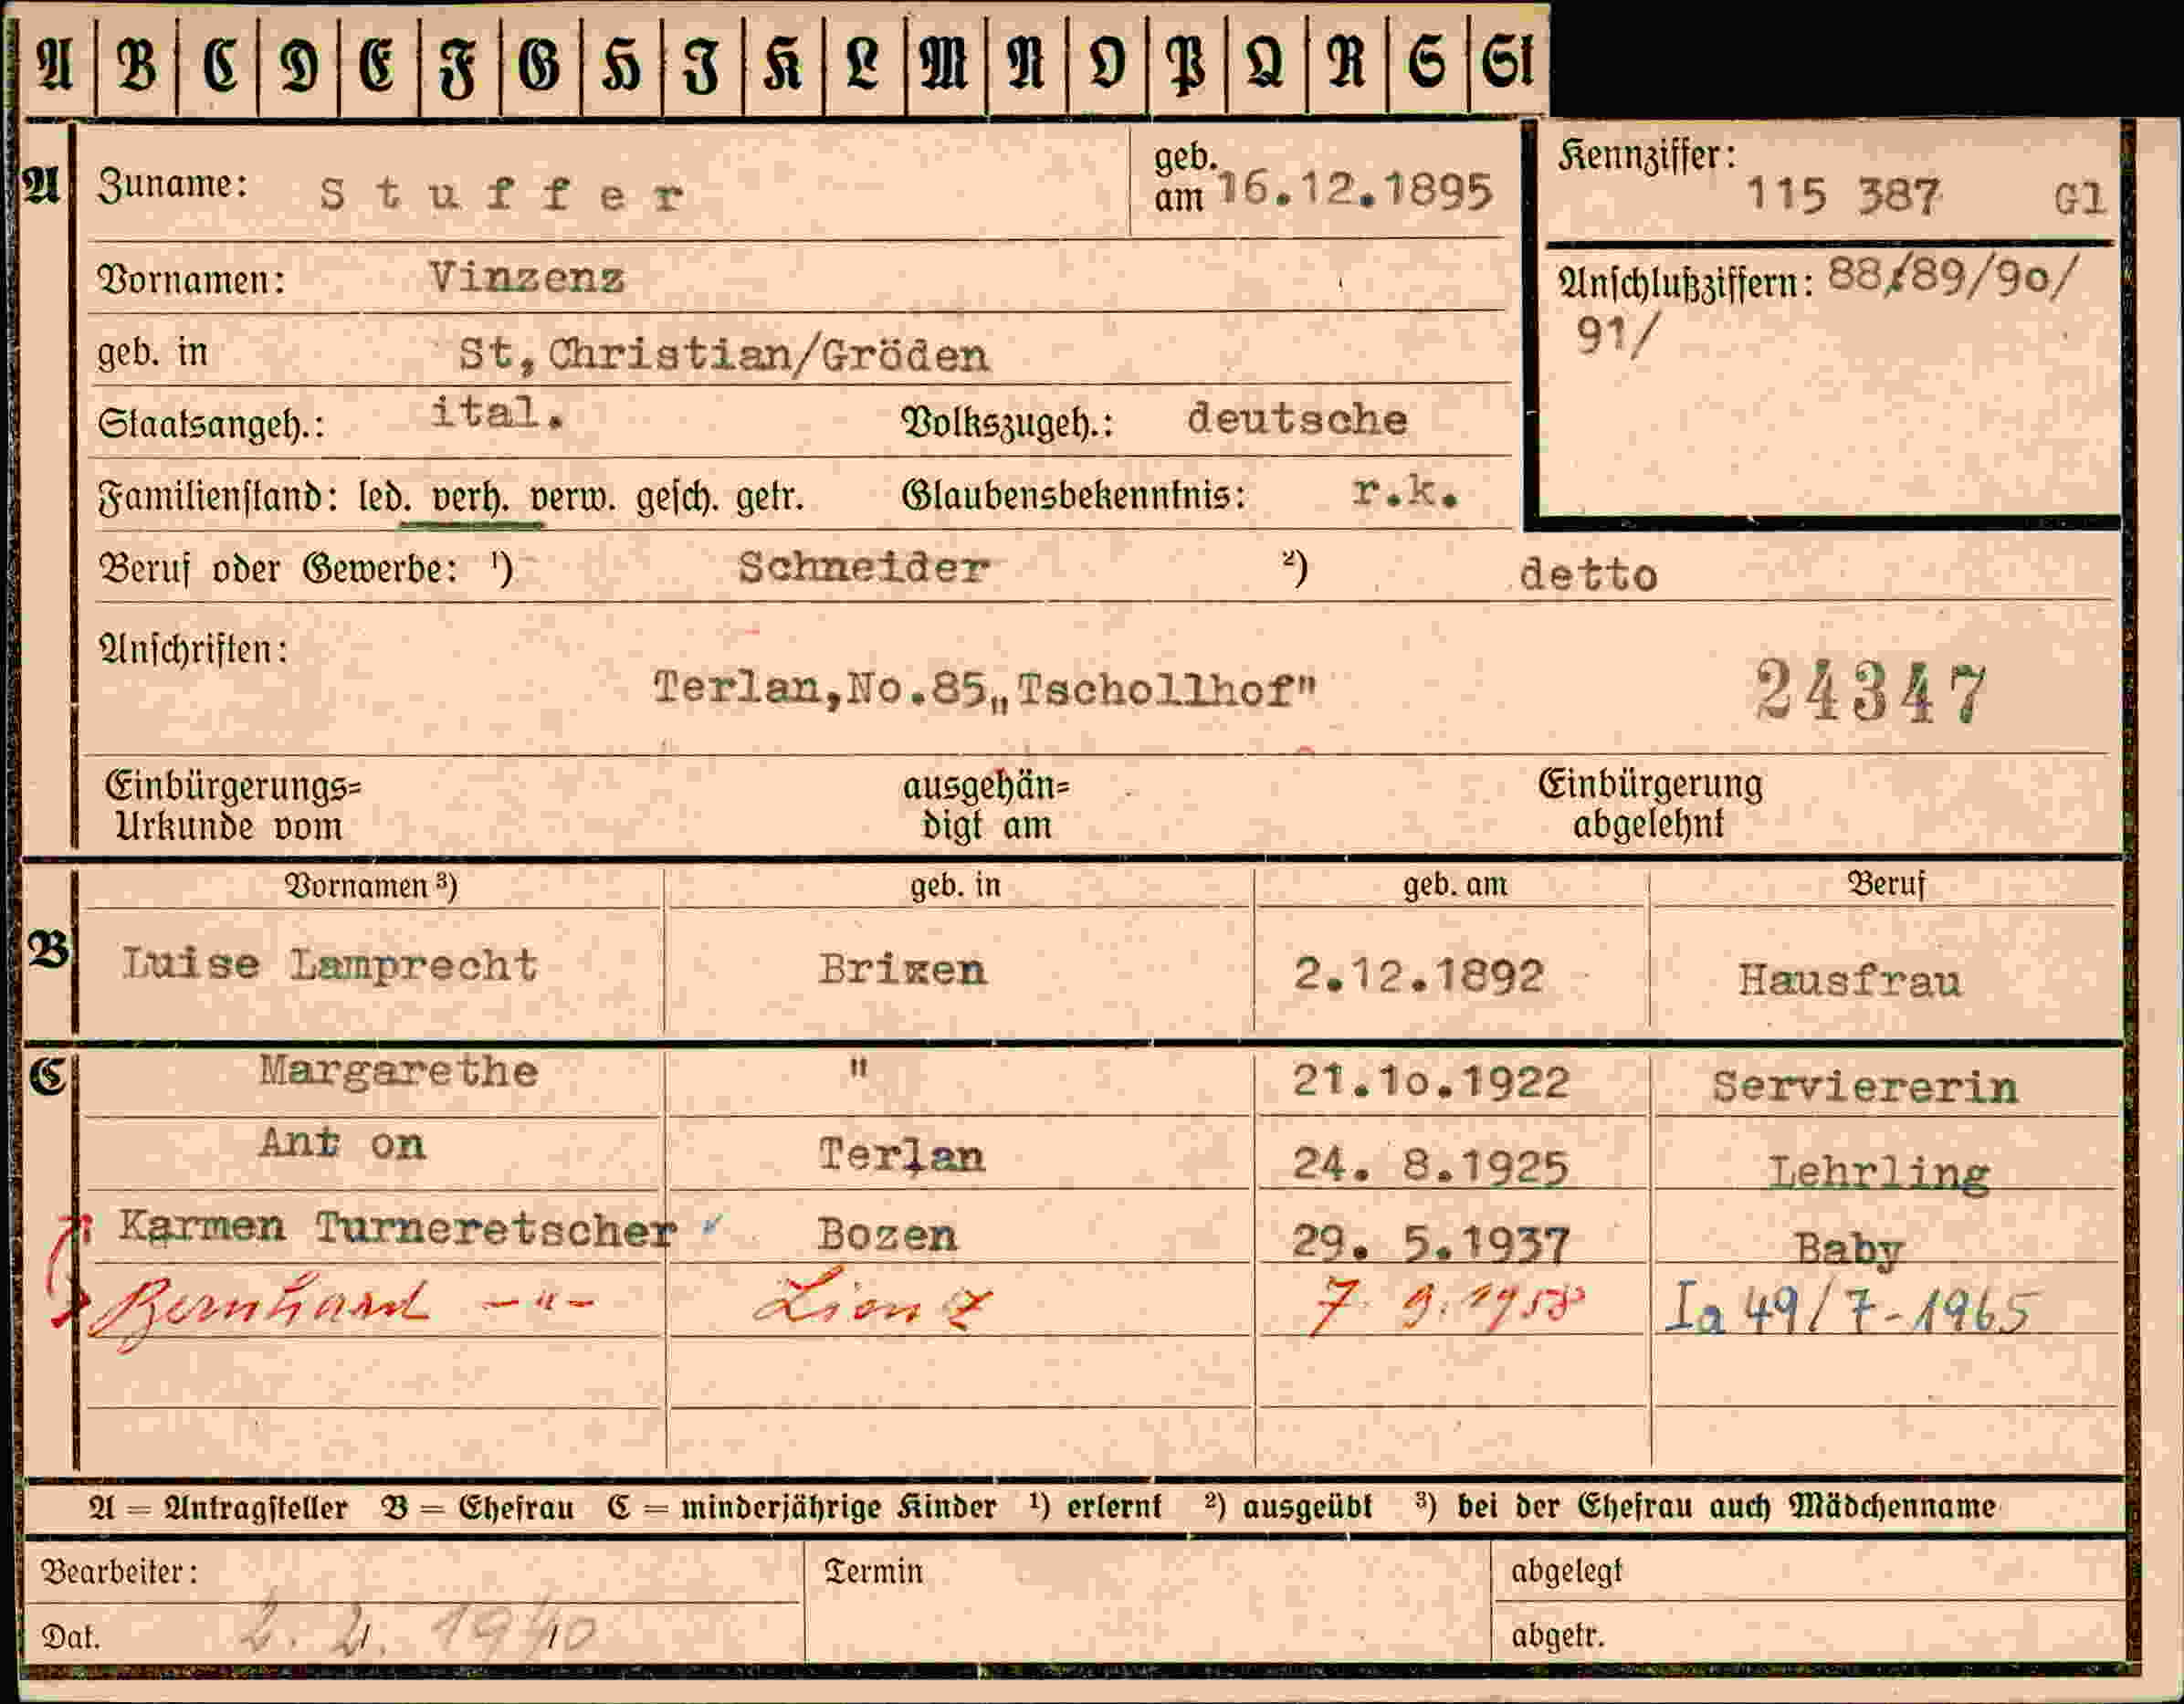 A B C D E F G H I K L M N O P Q R S St
A Zuname: Stuffer geb. am 16.12.1895 Kennziffer: 115 387 Gl
Vornamen: Vinzenz Anschlußziffern: 88/89/90/
91/
geb. in St,Christian/Gröden
Staatsangeh.: ital. Volkszugeh.: deutsche
Familienstand: led. verh. verw. gesch. getr. Glaubensbekenntnis: r.k.
Beruf oder Gewerbe: ¹) Schneider ²) detto
Anschriften:
Terlan,No.85„Tschollhof" 24347
Einbürgerungs= ausgehän= Einbürgerung
Urkunde vom digt am abgelehnt
Vornamen ³) geb. in geb. am Beruf
B Luise Lamprecht Brixen 2.12.1892 Hausfrau
C Margarethe " 21.10.1922 Serviererin
Ant on Terlan 24. 8.1925 Lehrling
Karmen Turneretscher Bozen 29. 5.1937 Baby
Bernhard -"- Lienz 7. 9. Ia 49/7-1965
A = Antragsteller B = Ehefrau C = minderjährige Kinder ¹) erlernt ²) ausgeübt ³) bei der Ehefrau auch Mädchenname
Bearbeiter: Termin abgelegt
Dat. 2. 2. 1940 abgetr.